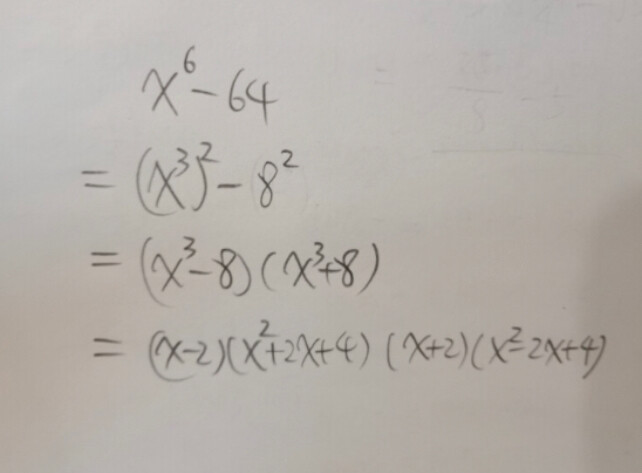 x⁶-64
= (x³)²-8²
= (x³-8)(x³+8)
= (x-2)(x²+2x+4)(x+2)(x²-2x+4)